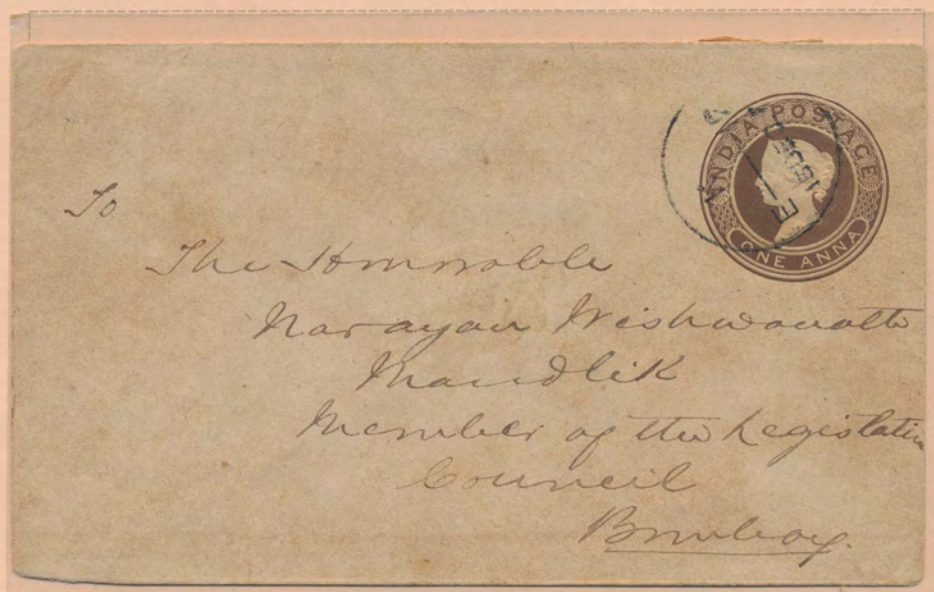 INDIA POSTAGE
ONE ANNA
To
The Honorable
Narayan Wishwanath
Mandlik
Member of the Legislative
Council
Bombay.